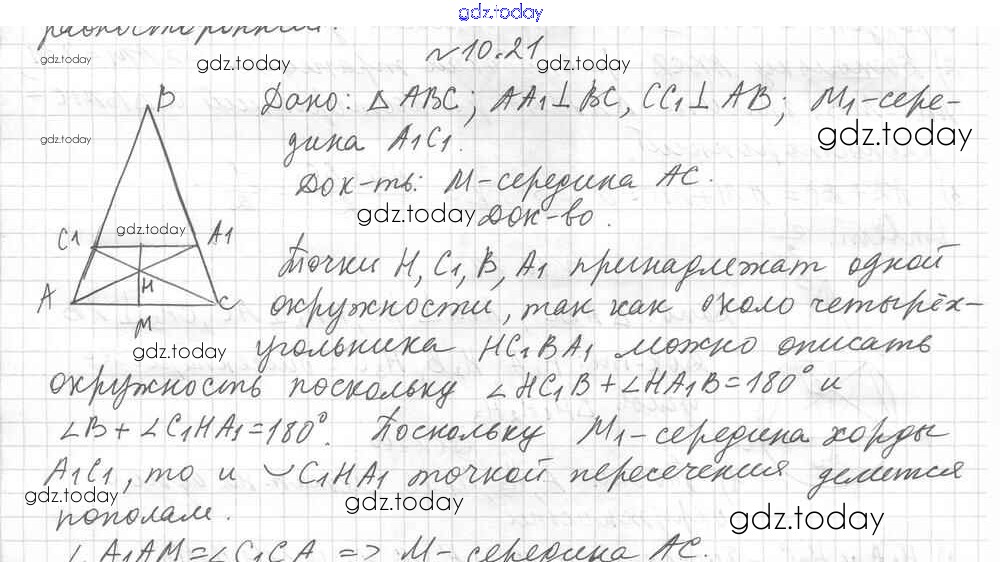 gdz.today
равносторонний.
gdz.today
№10.21
gdz.today
gdz.today
B
Дано: △ABC; AA1⊥BC, CC1⊥AB; M1-сере-
gdz.today
gdz.today
дина A1C1.
Док-ть: M-середина AC.
gdz.today
Док-во.
C1
gdz.today
A1
Точки H, C1, B, A1 принадлежат одной
A
H
C
окружности, так как около четырёх-
M
gdz.today
угольника HC1BA1 можно описать
окружность поскольку ∠HC1B+∠HA1B=180° и
∠B+∠C1HA1=180°. Поскольку M1-середина хорды
A1C1, то и ◡C1HA1 точкой пересечения делится
gdz.today
gdz.today
пополам.
gdz.today
∠A1AM=∠C1CA => M-середина AC.